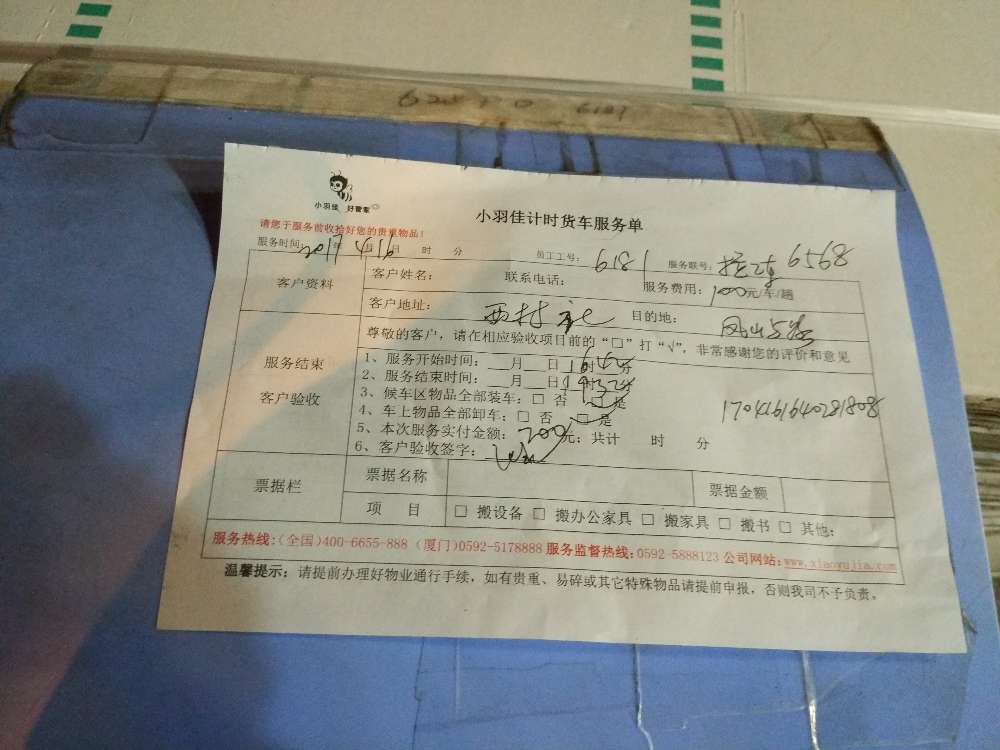 小羽佳 好管家
小羽佳计时货车服务单
请您于服务前收拾好您的贵重物品!
服务时间: 2017年4月16日 时 分 员工工号: 6181 服务联号: 6568
客户资料
客户姓名: 联系电话: 服务费用: 100元/车/趟
客户地址: 西村 目的地:
服务结束
客户验收
尊敬的客户,请在相应验收项目前的“□”打“√”,非常感谢您的评价和意见
1、服务开始时间: 月 日16时4 分
2、服务结束时间: 月 日 时 分
3、候车区物品全部装车: □ 否 □ 是
4、车上物品全部卸车: □ 否 □ 是
5、本次服务实付金额: 200元: 共计 时 分
6、客户验收签字:
票据栏
票据名称 票据金额
项 目 □ 搬设备 □ 搬办公家具 □ 搬家具 □ 搬书 □ 其他:
服务热线:(全国)400-6655-888 (厦门)0592-5178888 服务监督热线:0592-5888123 公司网站:www.xiaoyujia.com
温馨提示: 请提前办理好物业通行手续,如有贵重、易碎或其它特殊物品请提前申报,否则我司不予负责。